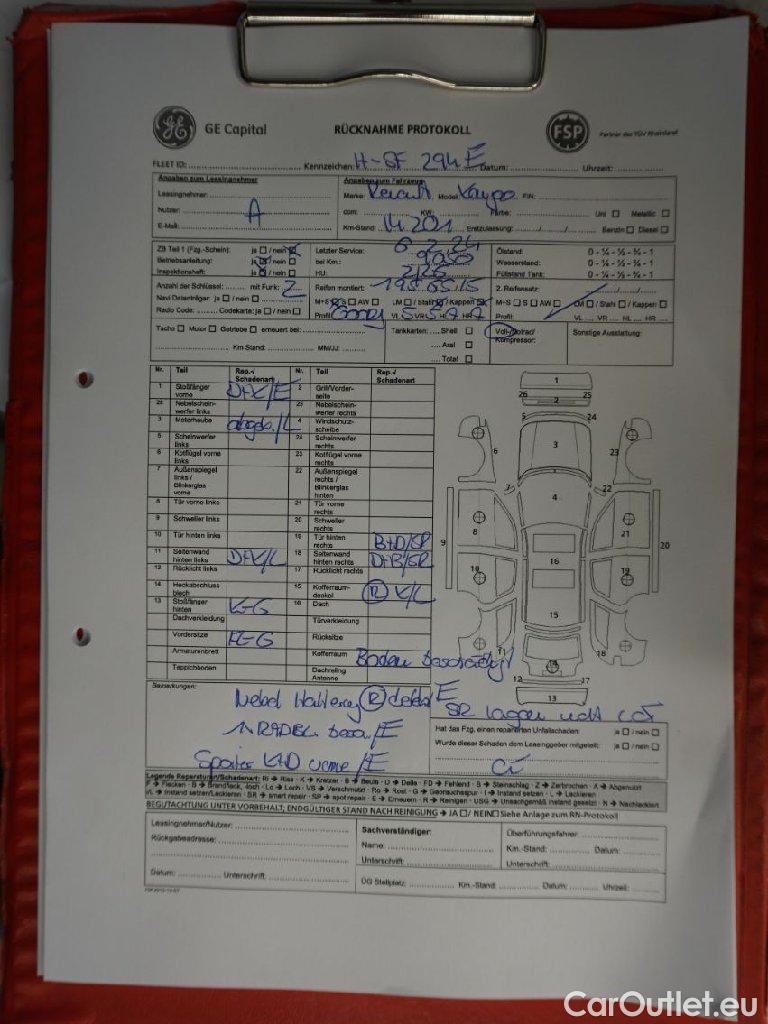 GE Capital
RÜCKNAHME PROTOKOLL
FSP
Partner des TÜV Rheinland
FLEET ID: Kennzeichen: H-GF 294 E Datum: Uhrzeit:
Angaben zum Leasingnehmer
Leasingnehmer:
Nutzer: A
E-Mail:
Angaben zum Fahrzeug
Marke: Renault Model: Kangoo FIN:
ccm: KW: Farbe: Uni Metallic
Km-Stand: 14.201 Erstzulassung: Benzin Diesel
ZB Teil 1 (Fzg.-Schein): ja / nein
Betriebsanleitung: ja / nein
Inspektionsheft: ja / nein
Letzter Service: 6.2.24
bei Km.: 9055
HU: 2/26
Ölstand: 0 - ¼ - ½ - ¾ - 1
Wasserstand: 0 - ¼ - ½ - ¾ - 1
Füllstand Tank: 0 - ¼ - ½ - ¾ - 1
Anzahl der Schlüssel: mit Funk: 2
Navi Datenträger ja / nein
Radio Code: Codekarte: ja / nein
Reifen montiert: 195.65.15
M+S S AW LM / Stahl / Kappen
Profil: VL 5 VR 5 HL 7 HR 7
2. Reifensatz:
M-S S AW LM / Stahl / Kappen
Profil: VL VR HL HR
Tacho Motor Getriebe erneuert bei:
Km-Stand: MM/JJ:
Tankkarten: Shell
Aral
Total
Vdl-/Notrad/
Kompressor:
Sonstige Ausstattung:
Nr. Teil Rep.-/ Schadenart Nr. Teil Rep./ Schadenart
1 Stoßfänger vorne D+K/E 2 Grill/Vorderseite
25 Nebelscheinwerfer links 26 Nebelscheinwerfer rechts
3 Motorhaube /L 4 Windschutzscheibe
5 Scheinwerfer links 24 Scheinwerfer rechts
6 Kotflügel vorne links 23 Kotflügel vorne rechts
7 Außenspiegel links / Blinkerglas vorne 22 Außenspiegel rechts / Blinkerglas hinten
8 Tür vorne links 21 Tür vorne rechts
9 Schweller links 20 Schweller rechts
10 Tür hinten links 19 Tür hinten rechts B+D/SP
11 Seitenwand hinten links D+K/L 18 Seitenwand hinten rechts D+B/SR
12 Rücklicht links 17 Rücklicht rechts
14 Heckabschlussblech 15 Kofferraumdeckel R K/L
13 Stoßfänger hinten K-G 16 Dach
Dachverkleidung Türverkleidung
Vordersitze FE-G Rücksitze
Armaturenbrett Kofferraum Boden beschädigt
Teppichboden Dachreling Antenne
Bemerkungen:
Nebel R defekt E
/E
Spoiler K+D vorne /E
SR lagen nicht vor
Hat das Fzg. einen reparierten Unfallschaden ja / nein
Wurde dieser Schaden dem Leasinggeber mitgeteilt: ja / nein
Legende Reparaturen/Schadenart: Ri → Riss · K → Kratzer · B → Beule · D → Delle · FD → Fehlend · S → Steinschlag · Z → Zerbrochen · A → Abgenutzt
F → Flecken · B → Brandfleck, -loch · Lo → Loch · VS → Verschmutzt · Ro → Rost · G → Gebrauchsspur · I → Instand setzen · L → Lackieren
I/L → Instand setzen/Lackieren · SR → smart repair · SP → spot repair · E → Erneuern · R → Reinigen · USG → Unsachgemäß instand gesetzt · N → Nachlackiert
BEGUTACHTUNG UNTER VORBEHALT; ENDGÜLTIGER STAND NACH REINIGUNG → JA / NEIN Siehe Anlage zum RN-Protokoll
Leasingnehmer/Nutzer:
Rückgabeadresse:
Datum: Unterschrift:
Sachverständiger:
Name:
Unterschrift:
Überführungsfahrer:
Km.-Stand: Datum:
Unterschrift:
ÜG Stellplatz: Km.-Stand Datum: Uhrzeit:
CarOutlet.eu